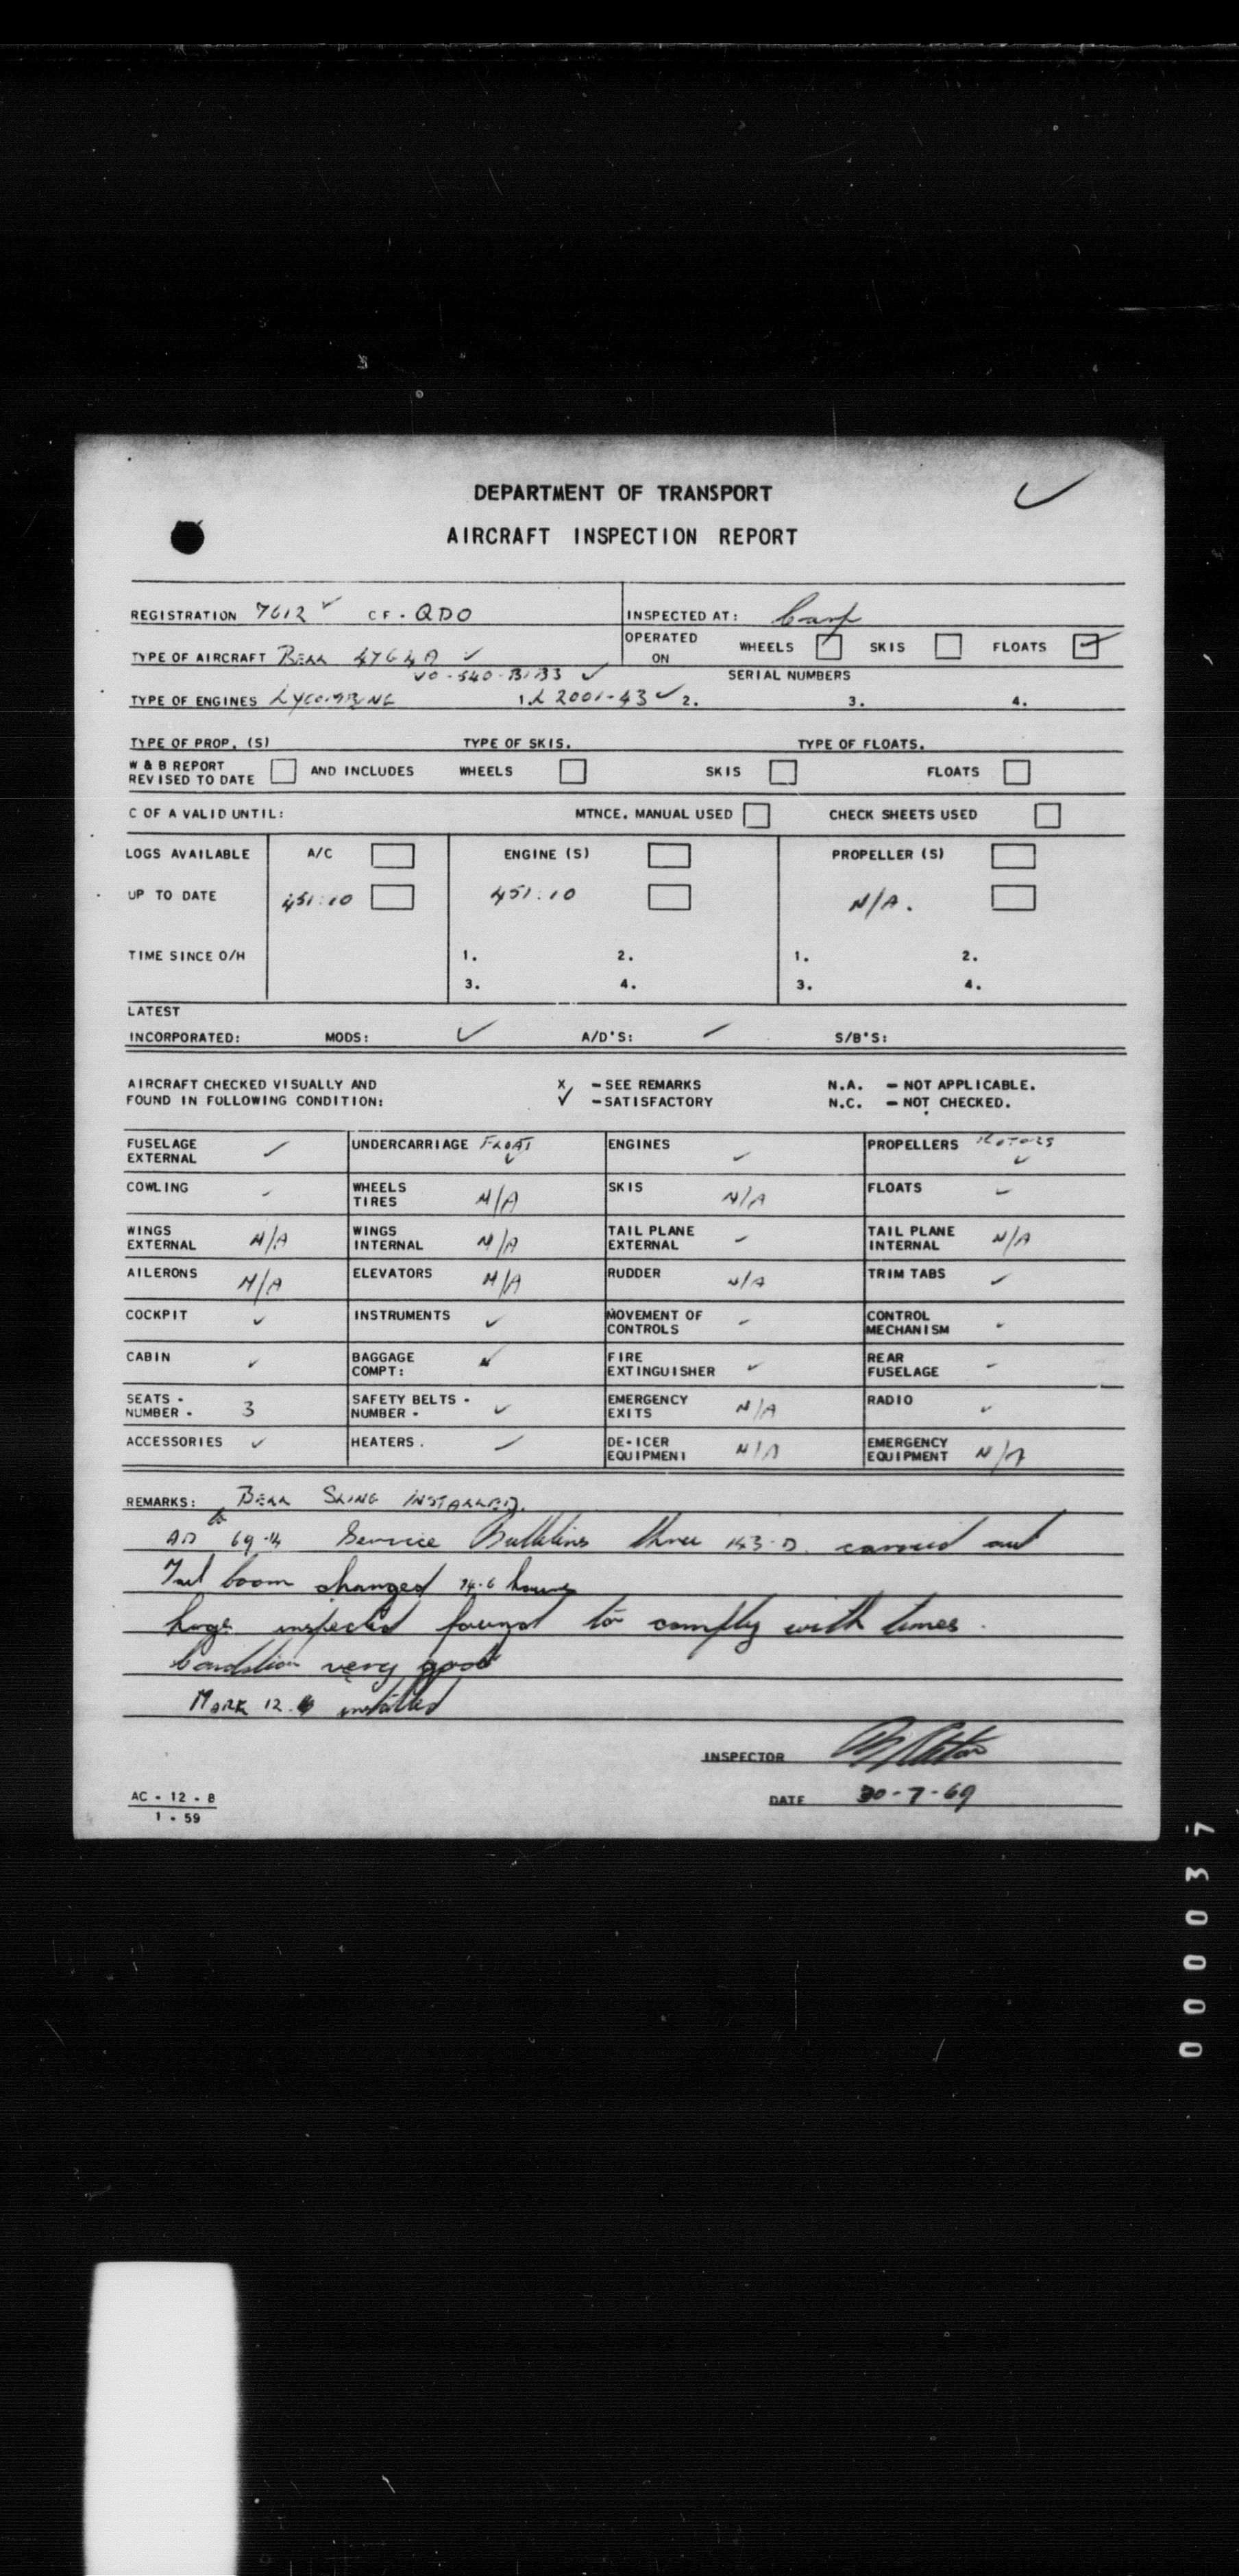 DEPARTMENT OF TRANSPORT
AIRCRAFT INSPECTION REPORT
REGISTRATION 7612 ✓ CF - QDO INSPECTED AT: Camp
TYPE OF AIRCRAFT BELL 47G4A ✓ OPERATED ON WHEELS SKIS FLOATS ✓
VO-540-B1B3 ✓ SERIAL NUMBERS
TYPE OF ENGINES LYCOMING 1. L 2001-43 ✓ 2. 3. 4.
TYPE OF PROP. (S) TYPE OF SKIS. TYPE OF FLOATS.
W & B REPORT REVISED TO DATE AND INCLUDES WHEELS SKIS FLOATS
C OF A VALID UNTIL: MTNCE. MANUAL USED CHECK SHEETS USED
LOGS AVAILABLE A/C ENGINE (S) PROPELLER (S)
UP TO DATE 451:10 451:10 N/A.
TIME SINCE O/H 1. 2. 1. 2.
3. 4. 3. 4.
LATEST
INCORPORATED: MODS: ✓ A/D'S: ✓ S/B'S:
AIRCRAFT CHECKED VISUALLY AND X - SEE REMARKS N.A. - NOT APPLICABLE.
FOUND IN FOLLOWING CONDITION: ✓ - SATISFACTORY N.C. - NOT CHECKED.
FUSELAGE EXTERNAL ✓ UNDERCARRIAGE FLOAT ✓ ENGINES ✓ PROPELLERS ROTORS ✓
COWLING ✓ WHEELS TIRES N/A SKIS N/A FLOATS ✓
WINGS EXTERNAL N/A WINGS INTERNAL N/A TAIL PLANE EXTERNAL ✓ TAIL PLANE INTERNAL N/A
AILERONS N/A ELEVATORS N/A RUDDER N/A TRIM TABS ✓
COCKPIT ✓ INSTRUMENTS ✓ MOVEMENT OF CONTROLS ✓ CONTROL MECHANISM ✓
CABIN ✓ BAGGAGE COMPT: ✓ FIRE EXTINGUISHER ✓ REAR FUSELAGE ✓
SEATS - NUMBER - 3 SAFETY BELTS - NUMBER - ✓ EMERGENCY EXITS N/A RADIO ✓
ACCESSORIES ✓ HEATERS. ✓ DE-ICER EQUIPMENT N/A EMERGENCY EQUIPMENT N/A
REMARKS: BELL SLING INSTALLED.
AD to 69-14 Service Bulletins three 143-D. carried out
Tail boom changed 74.6 hours
Logs inspected found to comply with times.
Condition very good
MARK 12. installed
INSPECTOR
DATE 30-7-69
AC - 12 - 8
1 - 59
000037